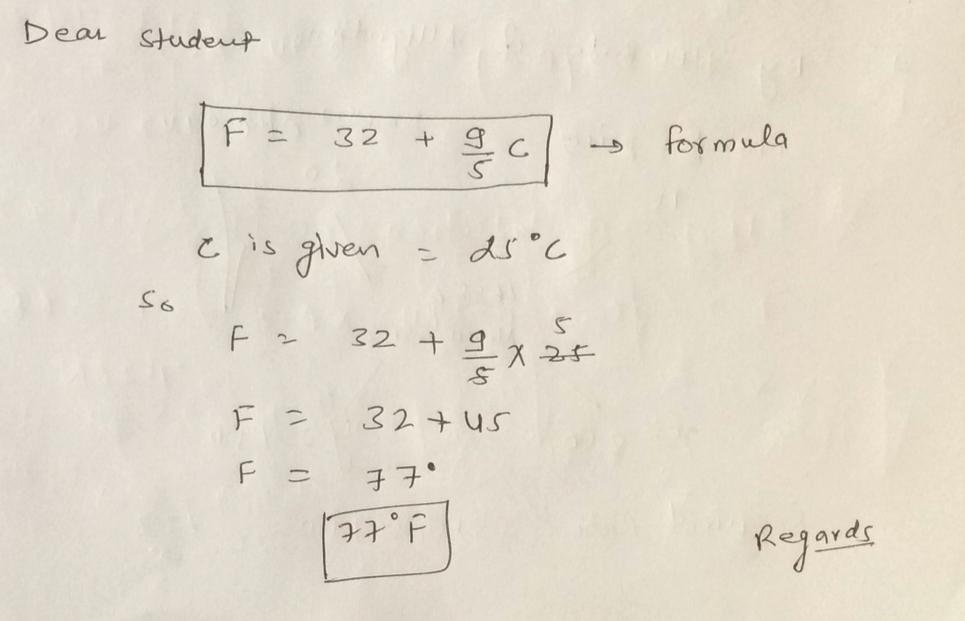 Dear Student
F = 32 + 9/5 C → formula
C is given = 25°C
So
F = 32 + 9/5 × 25 5
F = 32 + 45
F = 77°
77°F
Regards